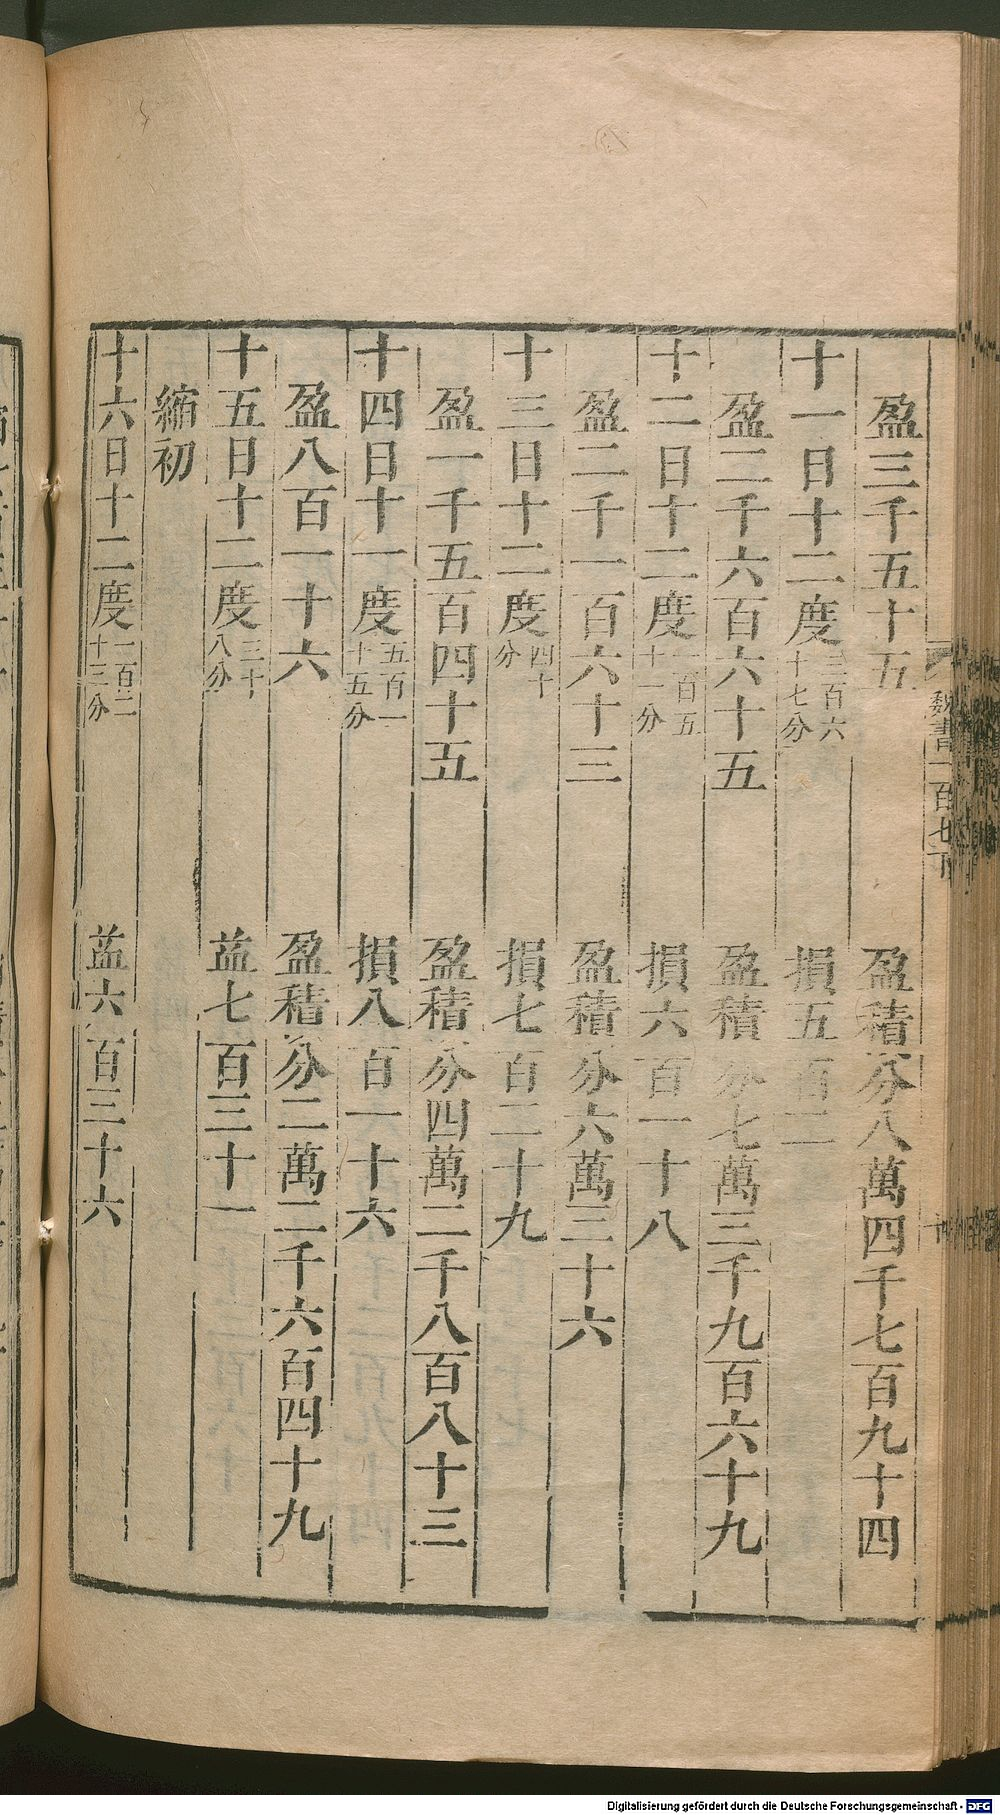 盈三千五十五　盈積分八萬四千七百九十四
十一日十二度三百六十七分　損五百二
盈二千六百六十五　盈積分七萬三千九百六十九
十二日十二度一百五十一分　損六百一十八
盈二千一百六十三　盈積分六萬三十六
十三日十二度四十分　損七百二十九
盈一千五百四十五　盈積分四萬二千八百八十三
十四日十一度五百一十五分　損八百一十六
盈八百一十六　盈積分二萬二千六百四十九
十五日十二度三十八分　益七百三十一
縮初
十六日十二度一百二十三分　益六百三十六
魏書一百七下
Digitalisierung gefördert durch die Deutsche Forschungsgemeinschaft - DFG